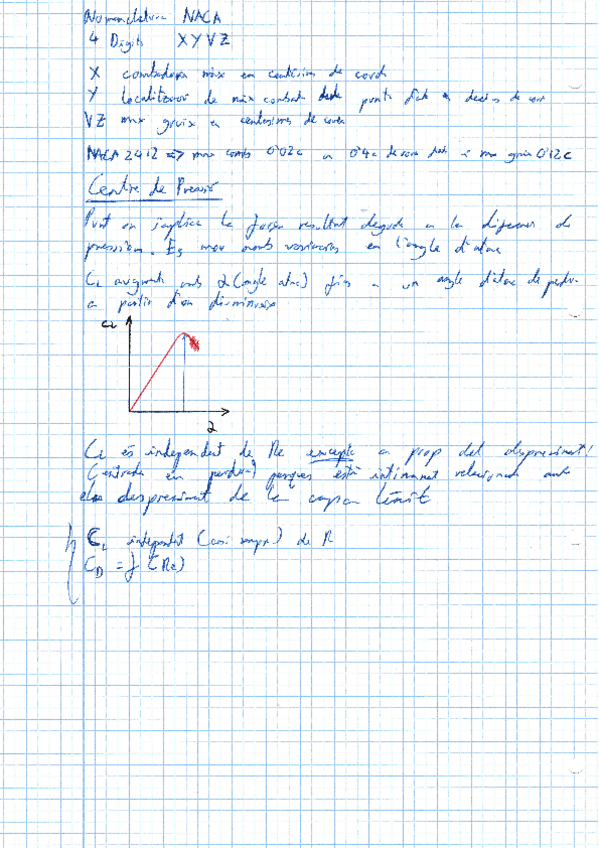 Nomenclatura NACA
4 Digits XYVZ
X combadura max en centesims de corda
Y localitzacó de max combadu desde punta d'atac en decims de cor
VZ max gruix en centesimes de corda
NACA 2412 => max comb 0'02c en 0'4c de vora i max gruix 0'12c
Centre de Pressió
Punt on s'aplica la força resultant deguda a la diferencia de
pressions. Es mou amb variacions en l'angle d'atac
CL augmenta amb α (angle atac) fins a un angle d'atac de perdua
a partir d'on disminueix
CL
α
CL és independent de Re excepte a prop del despreniment
(entrada en perdua) perque està intimament relacionat amb
el despreniment de la capa límit
CL independent (casi sempre) de R
CD = f (Re)